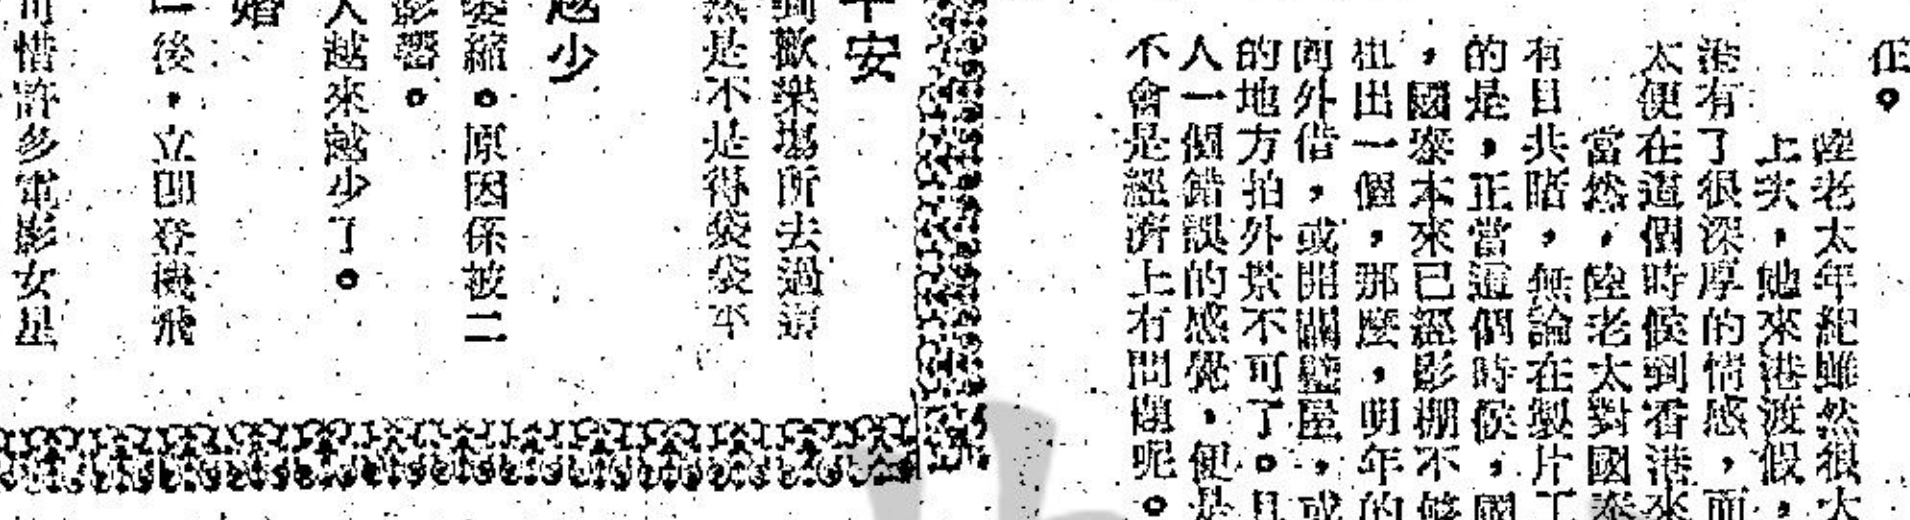 任。
陸老太年紀雖然很大
上次,她來港渡假,
港有了很深厚的情感,而
太便在這個時候到香港來
當然,陸老太對國泰
有目共睹,無論在製片工
的是,正當這個時候,國
,國泰本來已經影棚不夠
租出一個,那麼,明年的
向外借,或開闢壁屋,或
的地方拍外景不可了。且
人一個錯誤的感覺,便是
不會是經濟上有問題呢。
平安
到歡樂場所去過濟
然是不是得袋袋平
越少
縮。原因係被二
影響。
人越來越少了。
婚
一後,立即登機飛
可惜許多電影女星